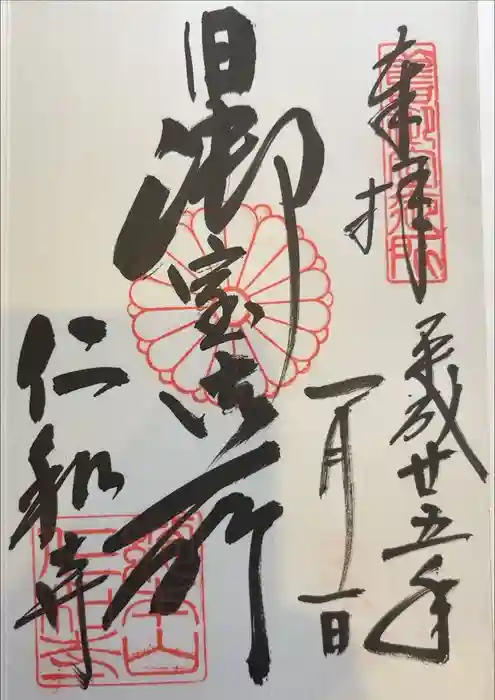 奉拝
平成廿五年
一月一日
旧御室御所
仁和寺